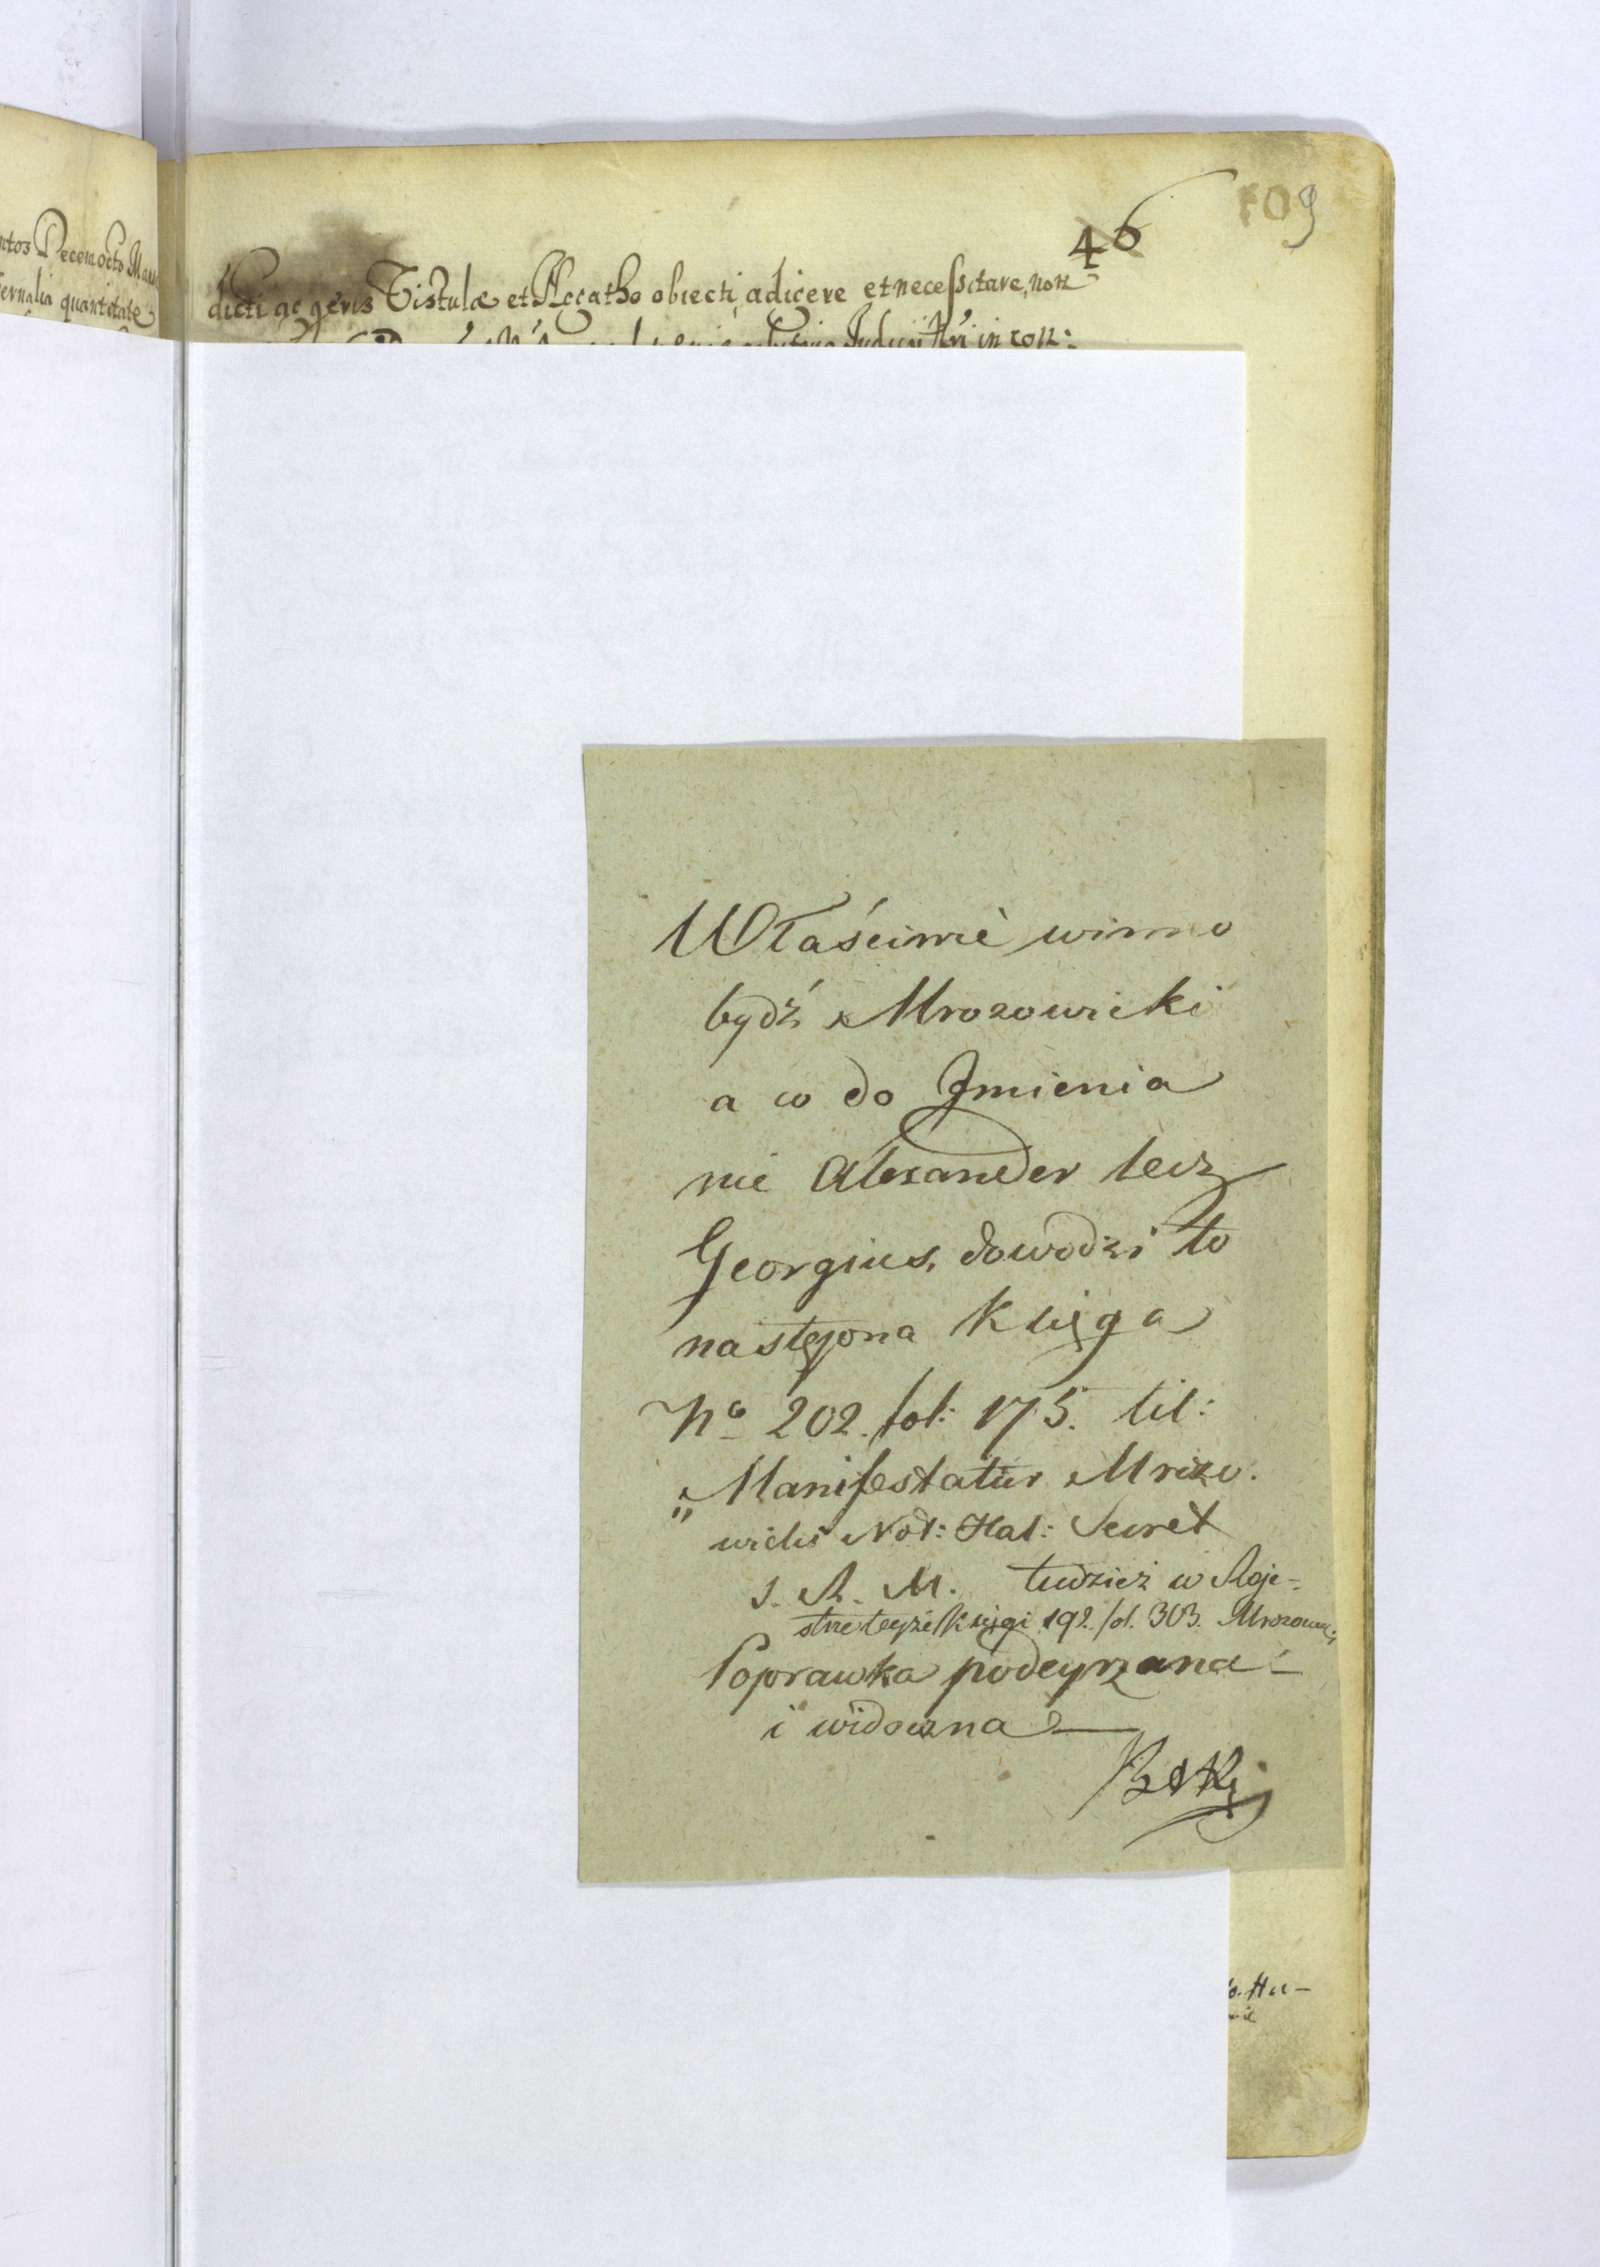 109
46
ntos Decem octo Man
ernalia quantitate
dicti ac geris Tistulæ et Accatho obiecti, adicere et necessitare, non
in con:
Właściwie winno
bydź Mrozowicki
a co do Jmienia
nie Alexander lecz
Georgius, dowodzi to
następna Księga
No 202. fol: 175. tit:
„Manifestatur Mrozo.
wicki Not: Hal: Secret
S. R. M. tudzież w Reje-
strze teyże Księgi 192. fol. 303. Mrozow:
Poprawka podeyrzana
i widoczna
Hu-